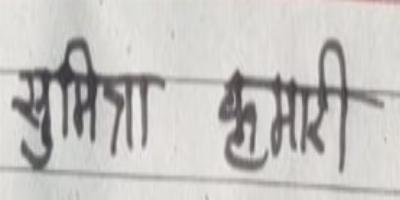 सुमित्रा कुमारी